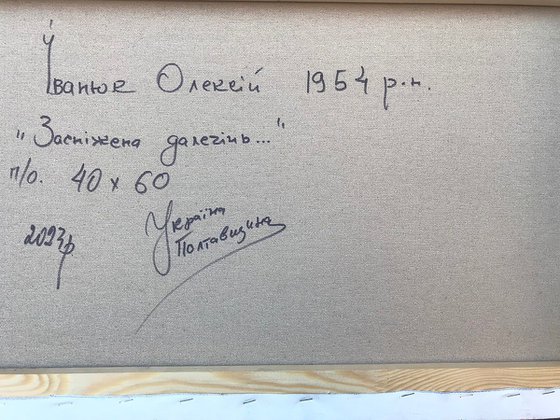 Іванюк Олексій 1954 р.н.
"Засніжена далечінь..."
п/о. 40 x 60
Україна
Полтавщина